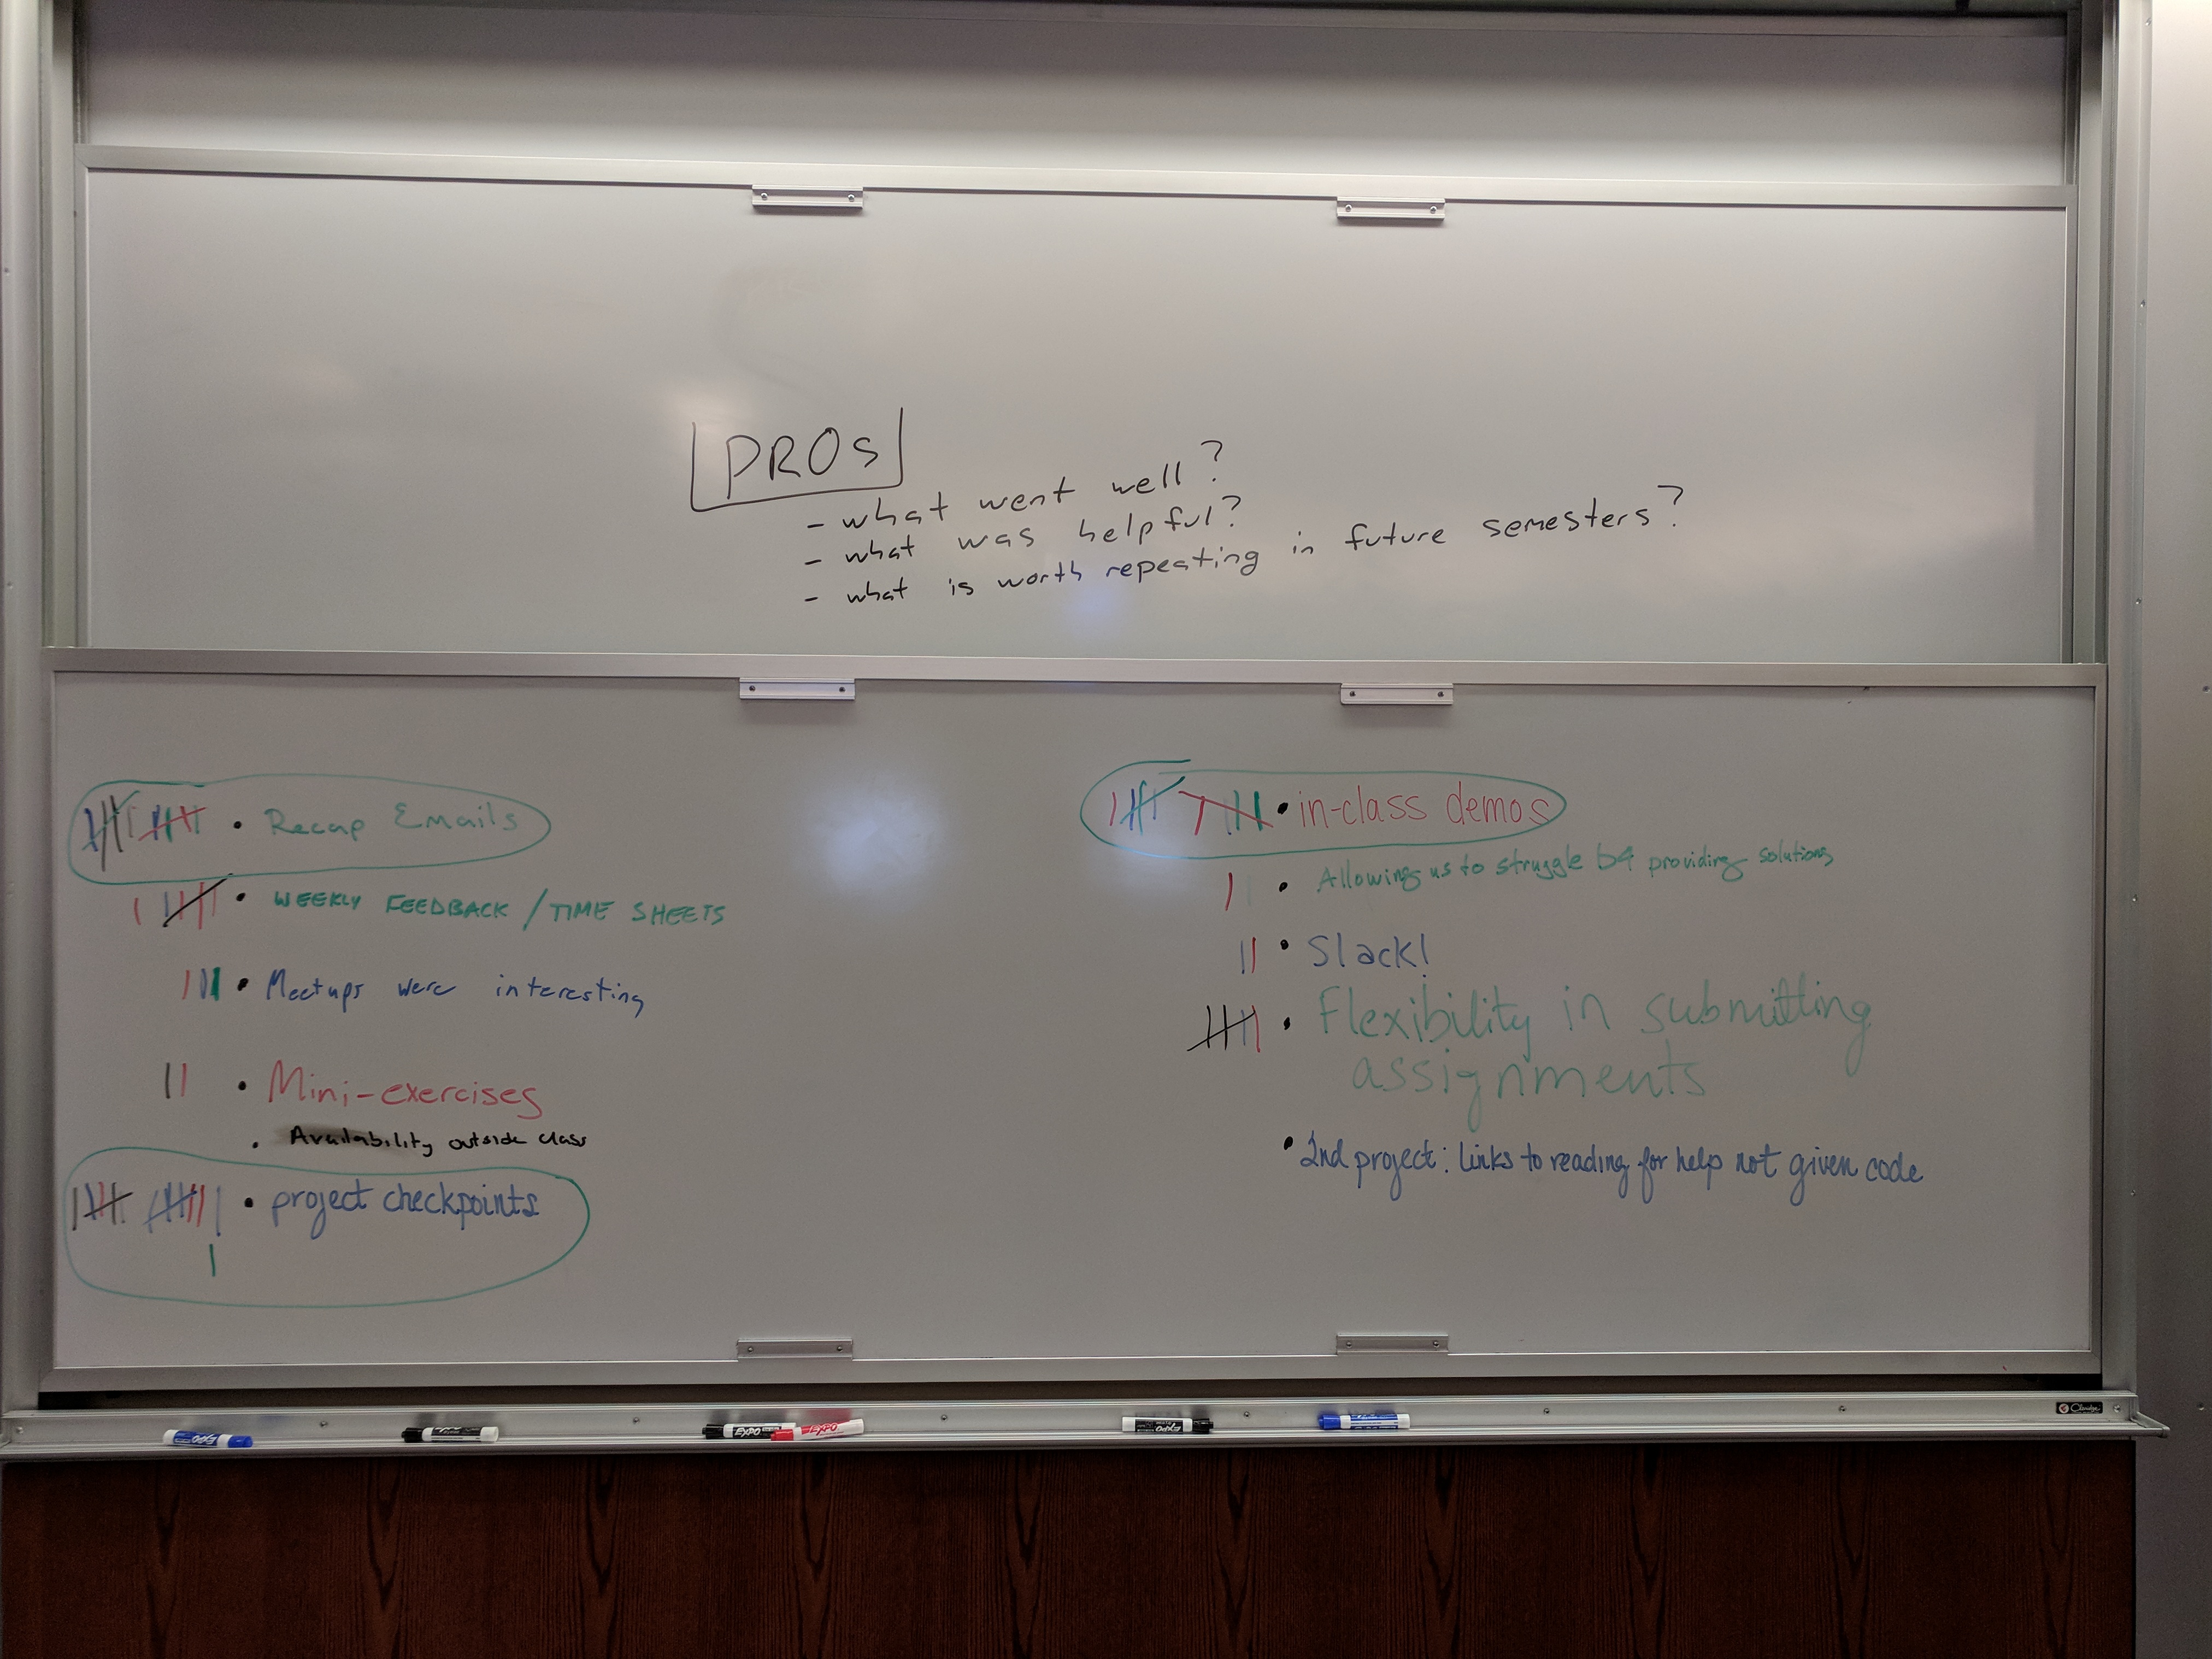 PROs
- what went well?
- what was helpful?
- what is worth repeating in future semesters?
• Recap Emails
• WEEKLY FEEDBACK / TIME SHEETS
• Meetups were interesting
• Mini-exercises
• Availability outside class
• project checkpoints
• in-class demos
• Allowing us to struggle b4 providing solutions
• Slack!
• Flexibility in submitting
assignments
• 2nd project: links to reading for help not given code
EXPO
EXPO
EXPO
EXPO
Claridge